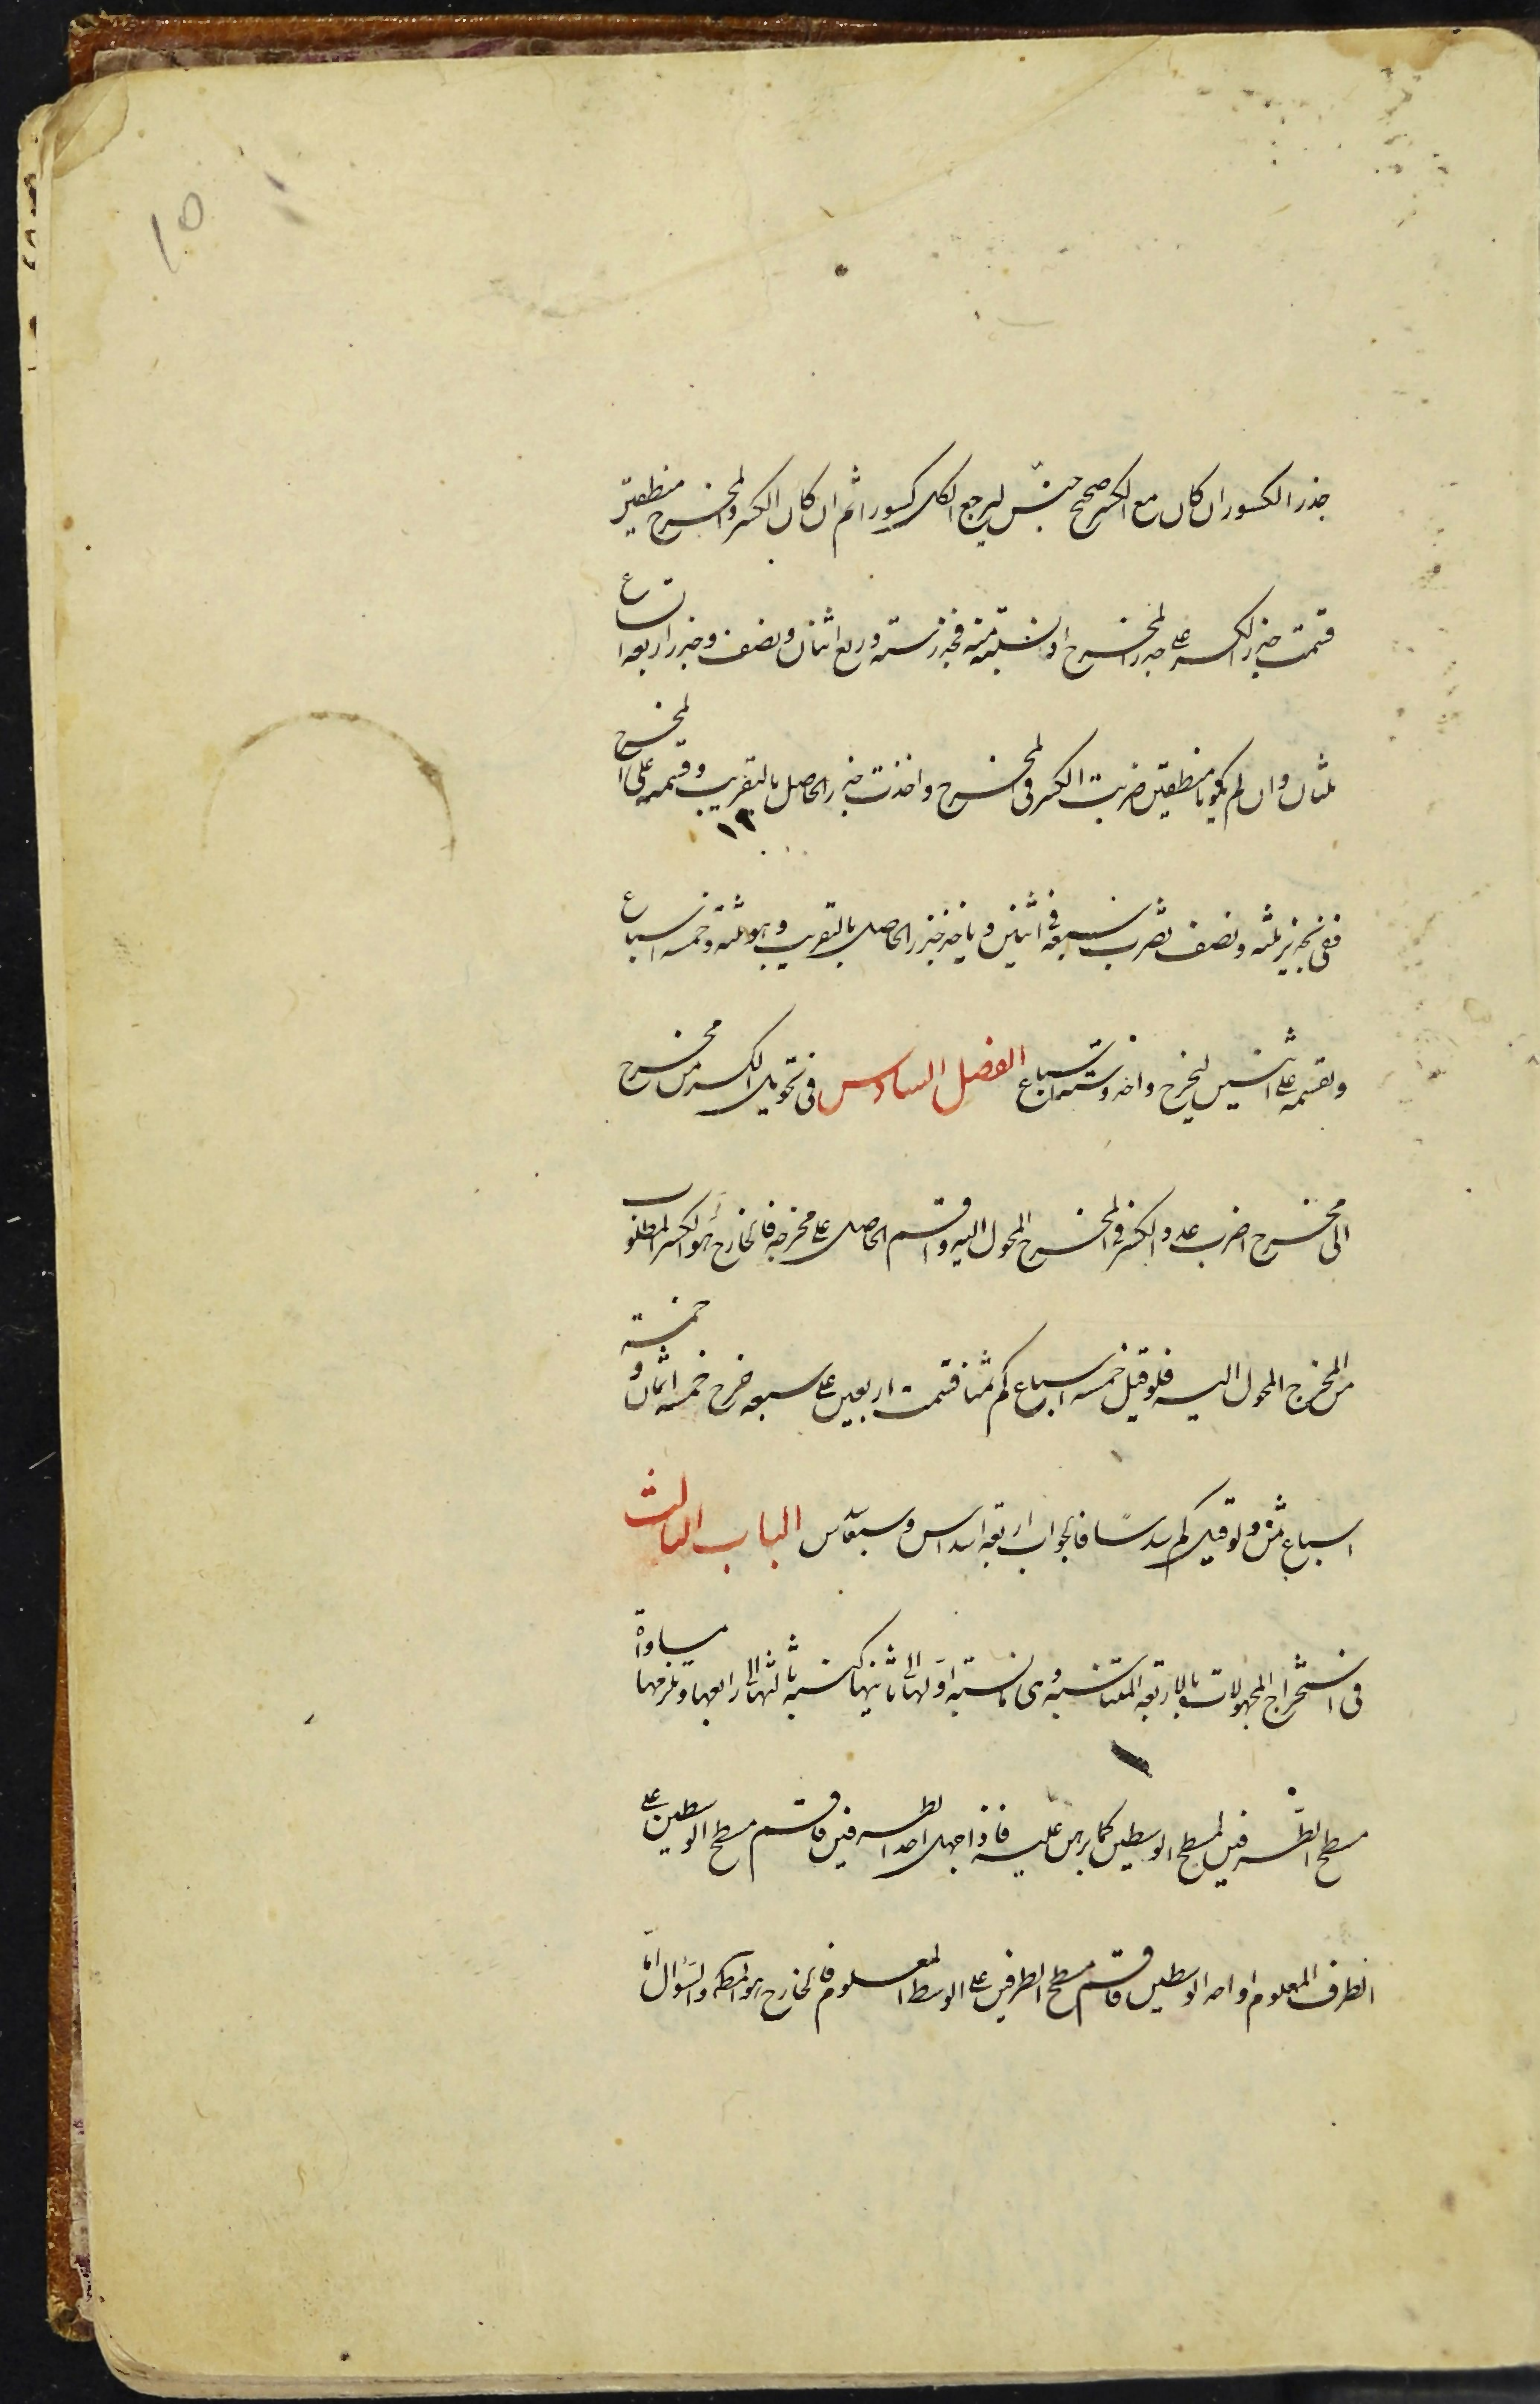 10
جذر الكسور ان كان مع الكسر صحيح جنّس ليرجع الكل كسورا ثم ان كان الكسر والمخرج منطقين
قسمت جذر الكسر على جذر المخرج او نسبته منه فجذر ستة وربع اثنان ونصف وجذر اربعة اتساع
ثلثان وان لم يكونا منطقين ضربت الكسر فى المخرج واخذت جذر الحاصل بالتقريب وقسمته على المخرج
١٣
ففى تجذير ثلثه ونصف تضرب سبعة فى اثنين وياخذ جذر الحاصل بالتقريب وهو ثلثة وخمسه اسباع
وتقسمه على اثنين ليخرج واحد وستة اسباع الفصل السادس فى تحويل الكسر من مخرج
الى مخرج اضرب عدد الكسر فى المخرج المحول اليه واقسم الحاصل على مخرجه فالخارج هو الكسر المطلوب
من المخرج المحول اليه فلو قيل خمسه اسباع كم ثمنا قسمت اربعين على سبعه خرج خمسه اثمان وخمسة
اسباع ثمن ولو قيل كم سدسًا فالجواب اربعة اسداس وسبعا سدس الباب الثالث
فى استخراج المجهولات بالاربعة المتناسبه وهى ما نسبة اولها الى ثانيها كنسبة ثالثها الى رابعها ويلزمها مساواة
مسطح الطرفين لمسطح الوسطين كما برهن عليه فاذا جهل احد الطرفين فاقسم مسطح الوسطين على
الطرف المعلوم او احد الوسطين فاقسم مسطح الطرفين على الوسط المعلوم فالخارج هو المط والسؤال اما